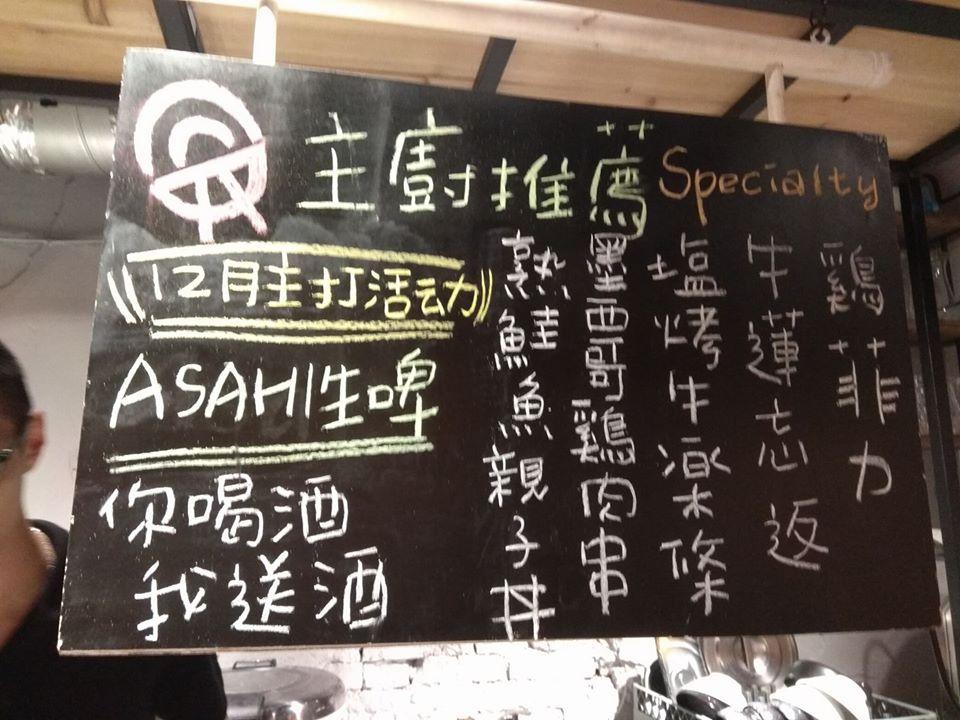 主廚推薦 Specialty
《12月主打活动》
ASAHI生啤
你喝酒
我送酒
鷄菲力
牛蓮忘返
塩烤牛條
墨西哥鷄肉串
熟鮭魚親子丼